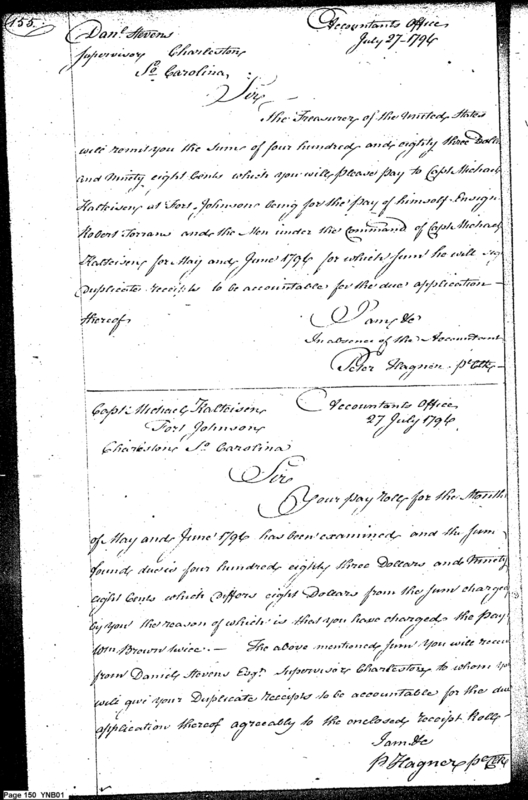 155.
Danl. Stevens
Supervisor Charleston
So. Carolina
Accountants Office
July 27-1794
Sir
The Treasurer of the United States
will remit you the sum of four hundred and eighty three Dolls
and Ninety eight Cents which you will please pay to Capt Michael
Kalteisen at Fort Johnson being for the pay of himself Ensign
Robert Torrans and the Men under the Command of Capt Michael
Kalteisen for May and June 1794 for which sum he will sign
Duplicate receipts to be accountable for the due application
thereof
I am &c
In absence of the Accountant
Peter Hagner
Capt. Michael Kalteisen
Fort Johnson
Charleston So. Carolina
Accountants Office
27 July 1794
Sir
Your pay Rolls for the Months
of May and June 1794 has been examined and the sum
found due is four hundred eighty three Dollars and Ninety
eight Cents which differs eight Dollars from the sum charged
by you the reason of which is that you have charged the pay
Wm Brown twice.— The above mentioned sum you will receive
from Daniel Stevens Esqr. Supervisor Charleston to whom you
will give your Duplicate receipts to be accountable for the due
application thereof agreeably to the enclosed receipt Rolls—
I am &c
P Hagner
Page 150 YNB01